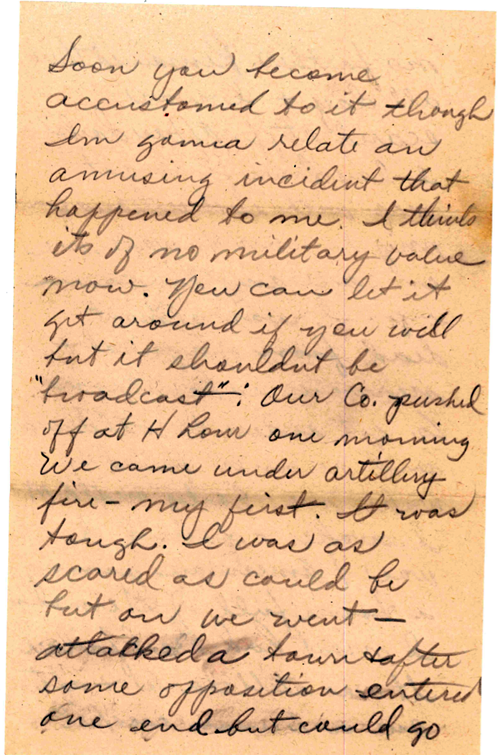 Soon you become
accustomed to it though
Im gonna relate an
amusing incident that
happened to me. I think
its of no military value
now. You can let it
get around if you will
but it shouldnt be
"broadcast": Our Co. pushed
off at H hour one morning
We came under artillery
fire - my first. It was
tough. I was as
scared as could be
but on we went -
attacked a town & after
some opposition entered
one end but could go